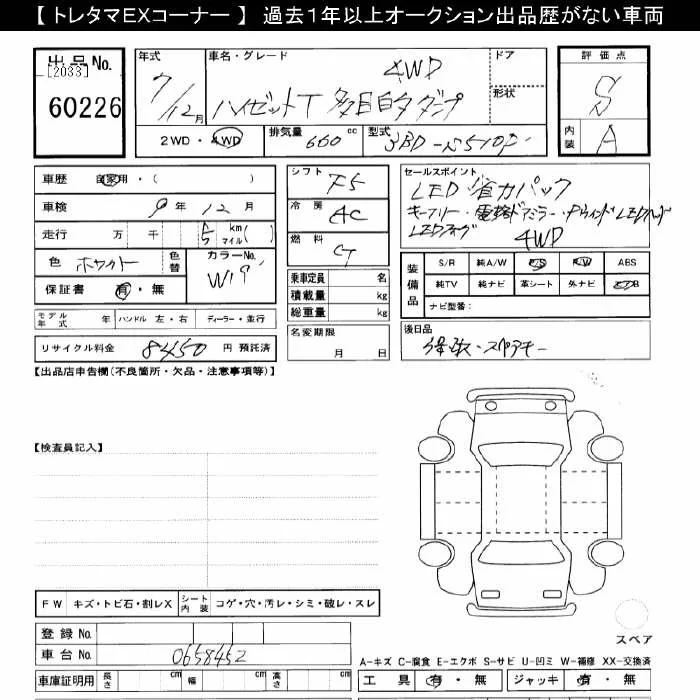 【 トレタマEXコーナー 】 過去1年以上オークション出品歴がない車両
出品No. 年式 車名・グレード ドア 評価点
【2033】 4WD
60226 7/12月 ハイゼットT 多目的ダンプ 形状 S
2WD・4WD 排気量 660cc 型式 3BD-S510P 内装 A
車歴 自家用・( ) シフト F5 セールスポイント
LED 省力パック
車検 9年12月 冷房 AC キーフリー・電格ドアミラー・Pウインド LEDヘッド
LEDフォグ 4WD
走行 万 千 km マイル( ) 燃料
色 ホワイト 色替 カラーNo. W19 装備品 S/R 純A/W P/S P/W ABS
保証書 有・無 乗車定員 名 純TV 純ナビ 革シート 外ナビ エアB
積載量 kg ナビ型番:
モデル年式 年 ハンドル 左・右 ディーラー・並行 総重量 kg
リサイクル料金 8450 円 預託済 名変期限 月 日 後日品
保・取・スペアキー
【出品店申告欄(不良箇所・欠品・注意事項等)】
【検査員記入】
FW キズ・トビ石・割レX シート内装 コゲ・穴・汚レ・シミ・破レ・スレ
登録No. スペア
車台No. 0658452 A-キズ C-腐食 E-エクボ S-サビ U-凹ミ W-補修 XX-交換済
車庫証明用 長さ cm 幅 cm 高さ cm 工具 有・無 ジャッキ 有・無